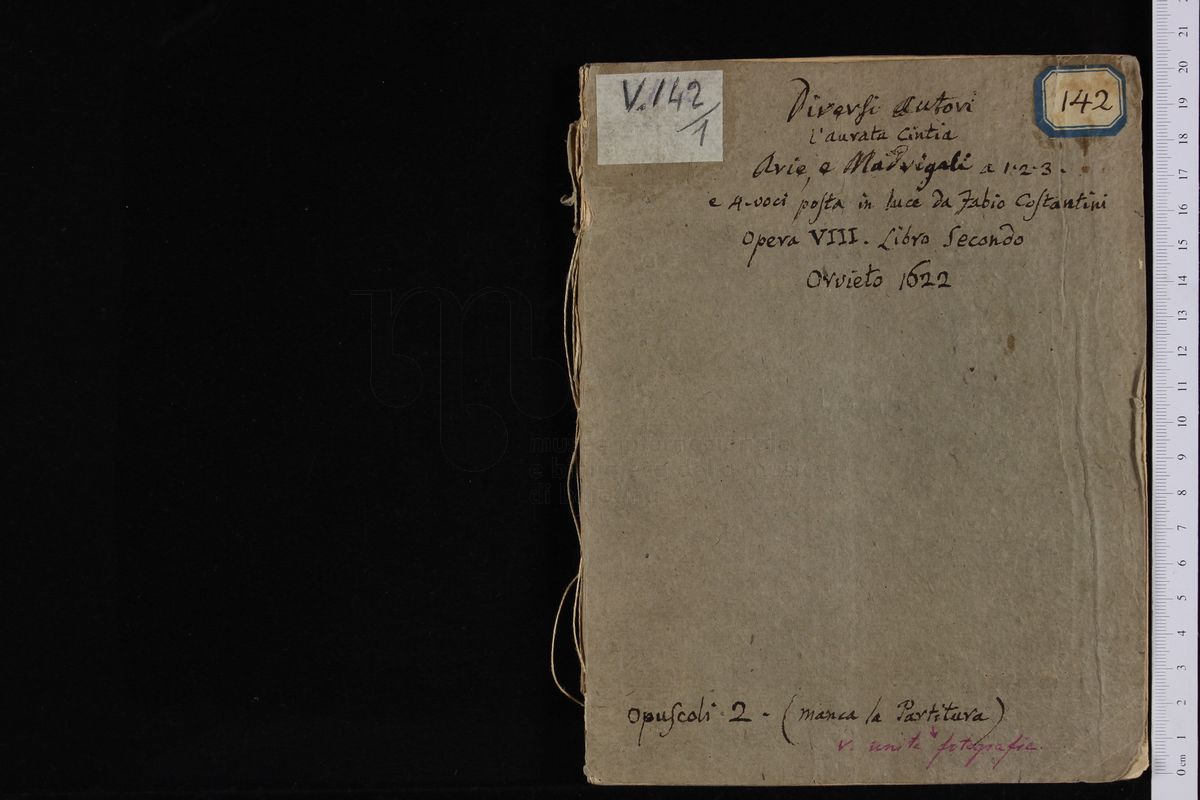 V.142/1
142
Diversi Autori
l'aurata Cintia
Arie, e Madrigali a 1·2·3·
e 4-voci posta in luce da Fabio Costantini
Opera VIII. Libro Secondo
Orvieto 1622
Opuscoli 2 - (manca la Partitura)
v. unita fotografia.
0 cm 1 2 3 4 5 6 7 8 9 10 11 12 13 14 15 16 17 18 19 20 21